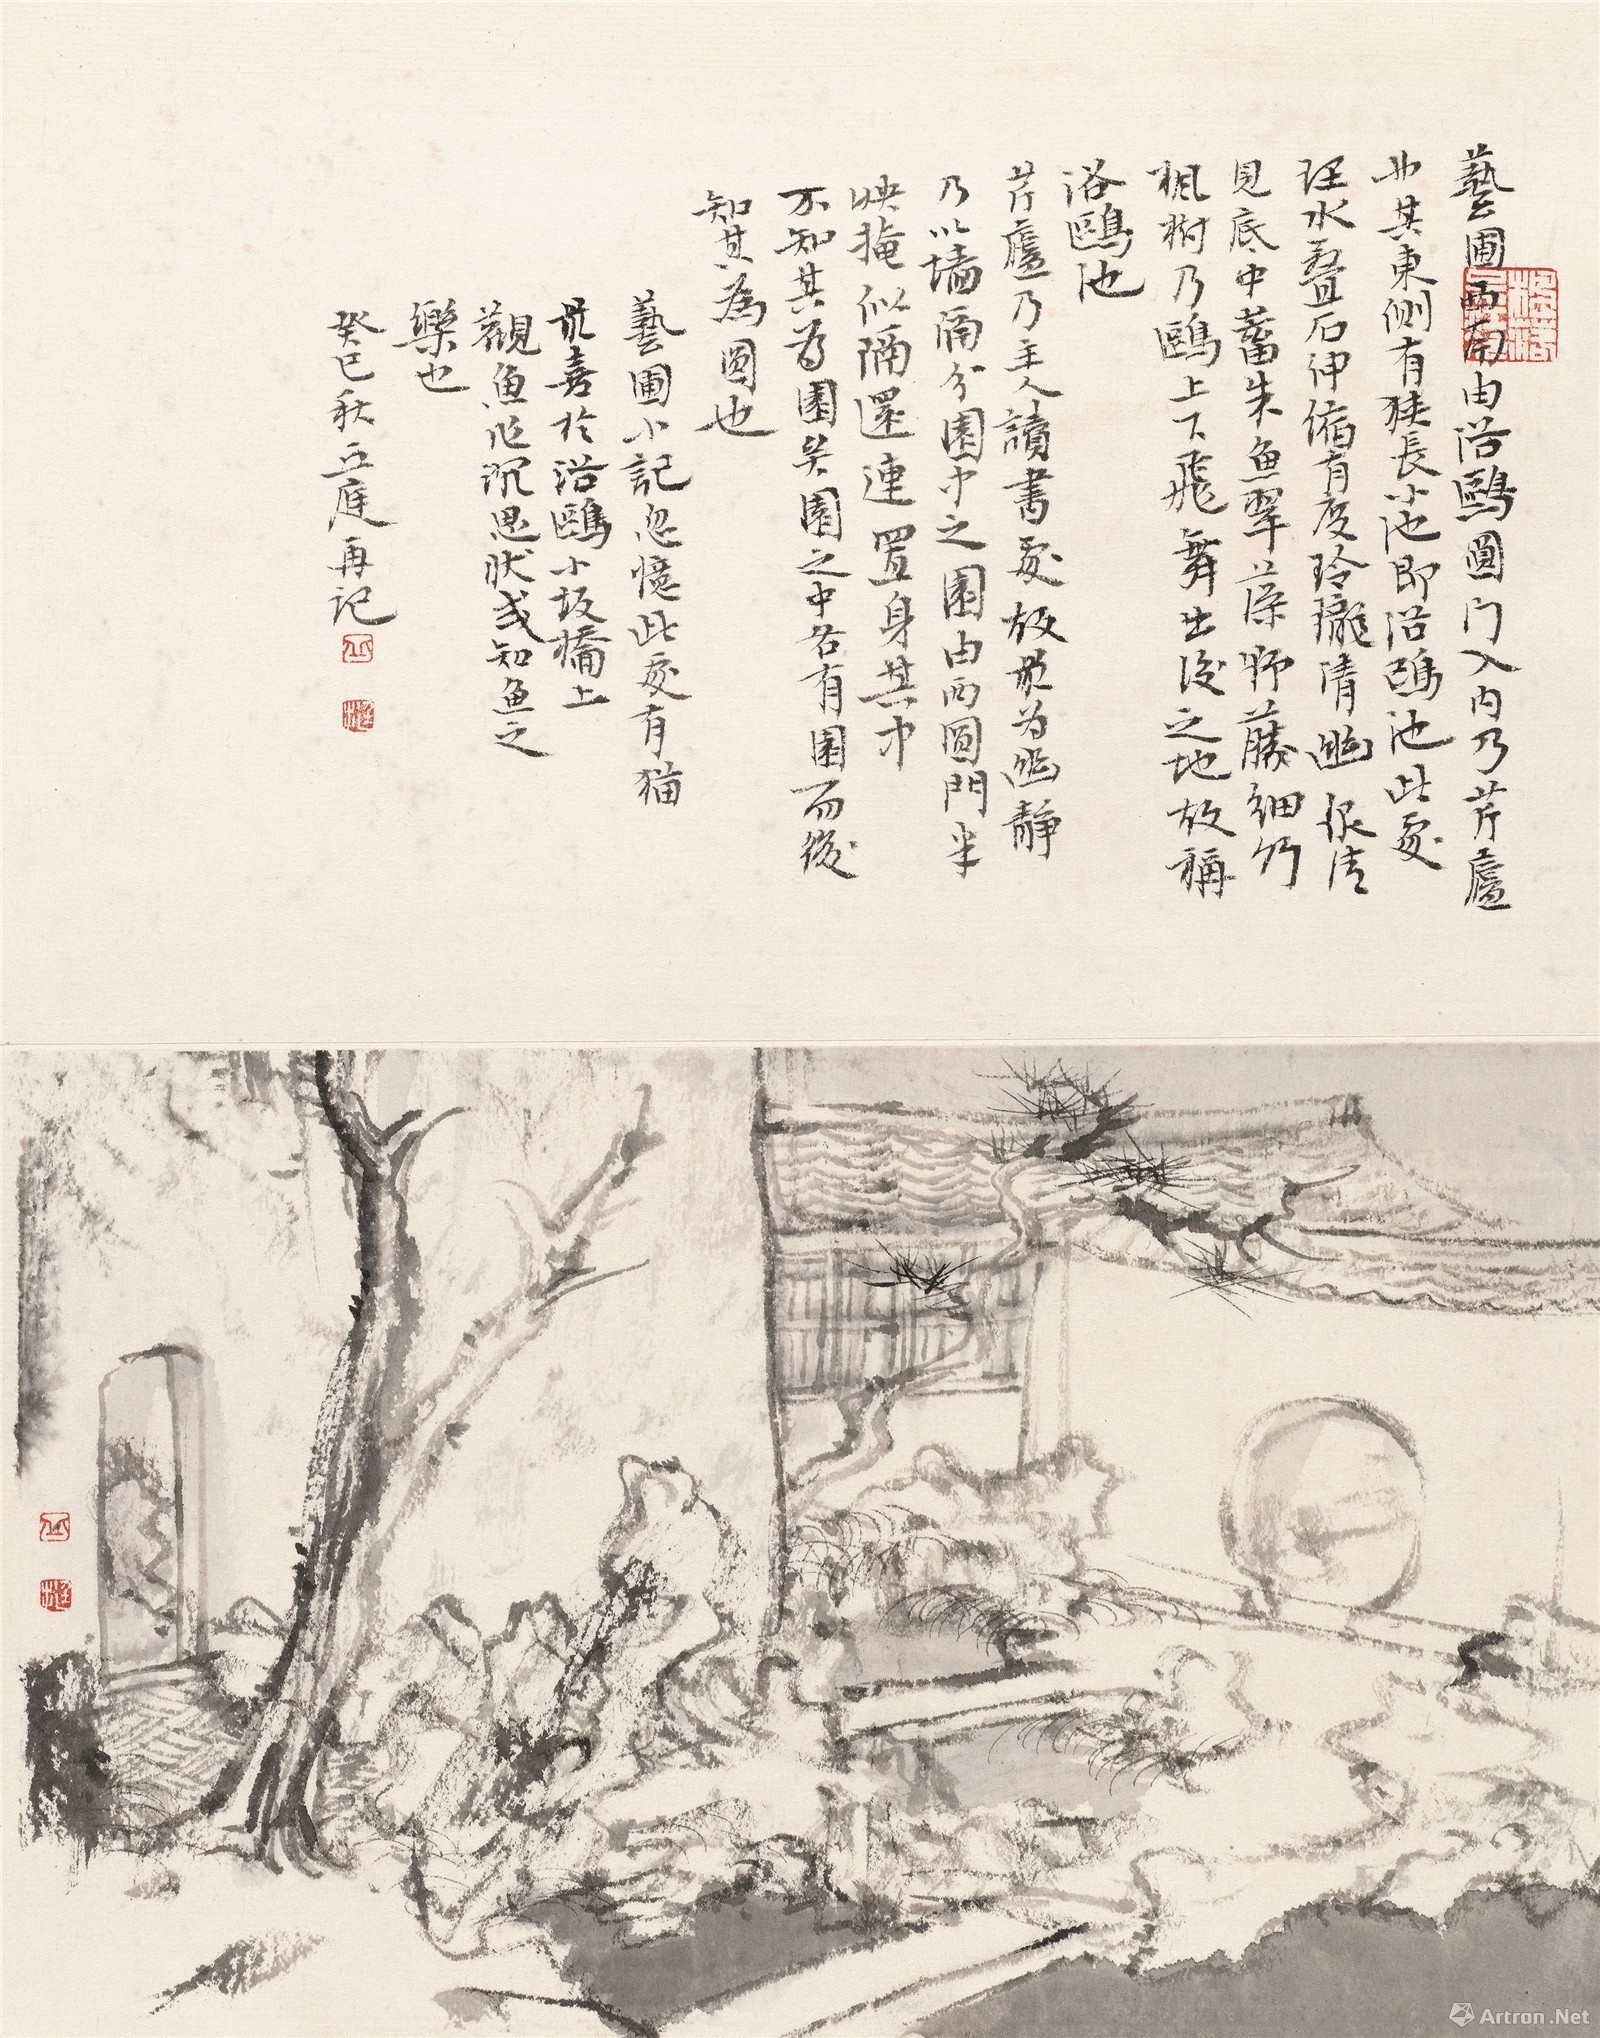 藝圃西南由浴鷗圓门入内乃芹廬
也其東侧有狭長小池即浴鷗池此處
水盈石伸俯有度玲瓏清幽
見底中蓄朱魚翠藤細竹
楓樹乃鷗上下飛舞出没之地故稱
浴鷗池
芹廬乃主人讀書處故最为幽静
乃以墙隔分園中之園由西圓門半
映掩似隔還連置身其中
不知其为園矣園之中各有園而後
知其為園也
藝圃小記忽憶此處有猫
最喜於浴鷗小板橋上
觀魚作沉思狀或知魚之
樂也
癸巳秋丘庭再记
Artron.Net